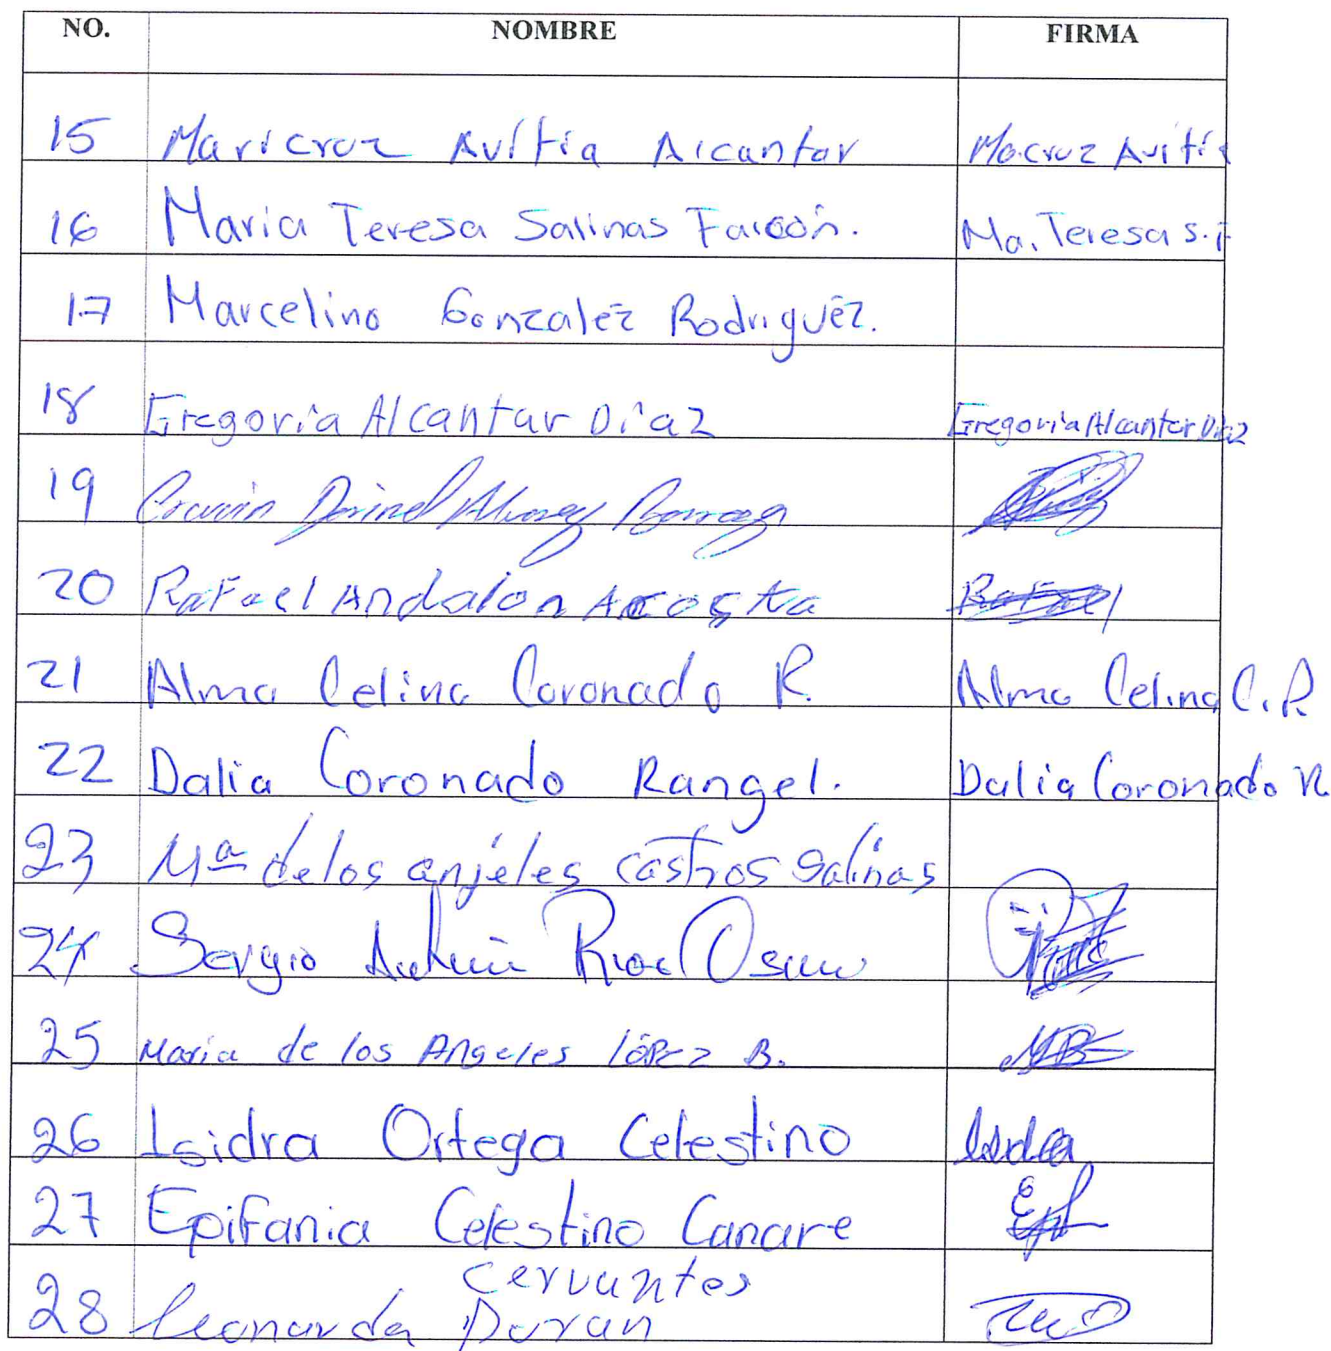 NO. NOMBRE FIRMA
15 Maricruz Avitia Alcantar Ma.cruz Avitia
16 Maria Teresa Salinas Falcón. Ma. Teresa S. F
17 Marcelino Gonzalez Rodriguez.
18 Gregoria Alcantar Diaz Gregoria Alcantar Diaz
19
20 Rafael Andalon Acosta Rafael
21 Alma Celina Coronado R. Alma Celina C.R
22 Dalia Coronado Rangel. Dalia Coronado R
23 Mª de los anjéles castros Salinas
24 Sergio Rios Osuna
25 Maria de los Angeles lópez B. MB
26 Isidra Ortega Celestino Isidra
27 Epifania Celestino Canare Epf
Cervantes
28 Leonarda Duran